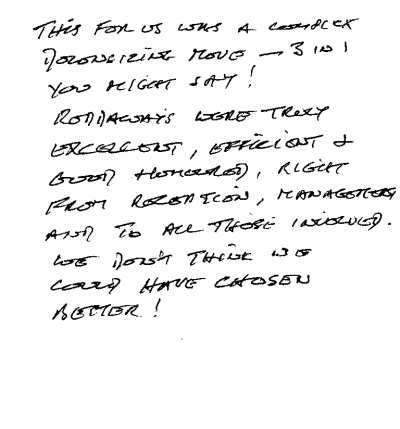 THIS FOR US WAS A COMPLEX
DOWNSIZING MOVE - 3 IN 1
YOU MIGHT SAY!
RODDAWAYS WERE TRULY
EXCELLENT, EFFICIENT &
GOOD HUMOURED, RIGHT
FROM RECEPTION, MANAGEMENT
AND TO ALL THOSE INVOLVED.
WE DON'T THINK WE
COULD HAVE CHOSEN
BETTER!